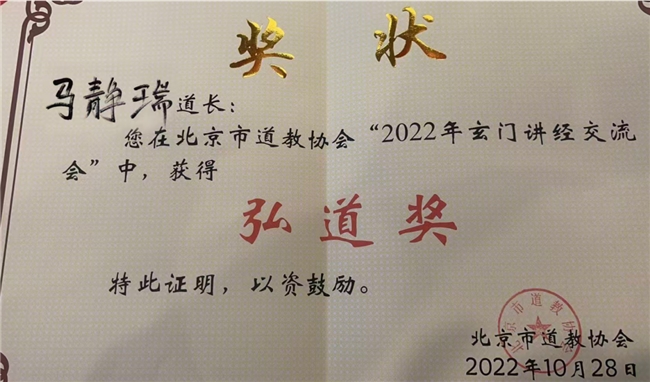 奖状
马静瑞道长：
您在北京市道教协会“2022年玄门讲经交流
会”中，获得
弘道奖
特此证明，以资鼓励。
北京市道教协会
北京市道教协会
2022年10月28日